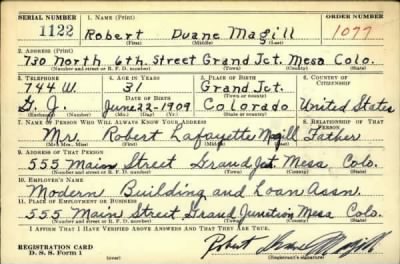 SERIAL NUMBER 1. NAME (Print) ORDER NUMBER
1122 Robert Duane Magill 1077
(First) (Middle) (Last)
2. ADDRESS (Print)
730 North 6th. Street Grand Jct. Mesa Colo.
(Number and street or R. F. D. number) (Town) (County) (State)
3. TELEPHONE 4. AGE IN YEARS 5. PLACE OF BIRTH 6. COUNTRY OF CITIZENSHIP
744 W. 31 Grand Jct.
DATE OF BIRTH (Town or county)
G. J. June 22-1909 Colorado United States
(Exchange) (Number) (Mo.) (Day) (Yr.) (State or country)
7. NAME OF PERSON WHO WILL ALWAYS KNOW YOUR ADDRESS 8. RELATIONSHIP OF THAT PERSON
Mr. Robert Lafayette Magill Father
(Mr., Mrs., Miss) (First) (Middle) (Last)
9. ADDRESS OF THAT PERSON
555 Main Street Grand Jct. Mesa Colo.
(Number and street or R. F. D. number) (Town) (County) (State)
10. EMPLOYER'S NAME
Modern Building and Loan Assn.
11. PLACE OF EMPLOYMENT OR BUSINESS
555 Main Street, Grand Junction Mesa Colo.
(Number and street or R. F. D. number) (Town) (County) (State)
I AFFIRM THAT I HAVE VERIFIED ABOVE ANSWERS AND THAT THEY ARE TRUE.
REGISTRATION CARD Robert Duane Magill
D. S. S. Form 1 (Registrant's signature)